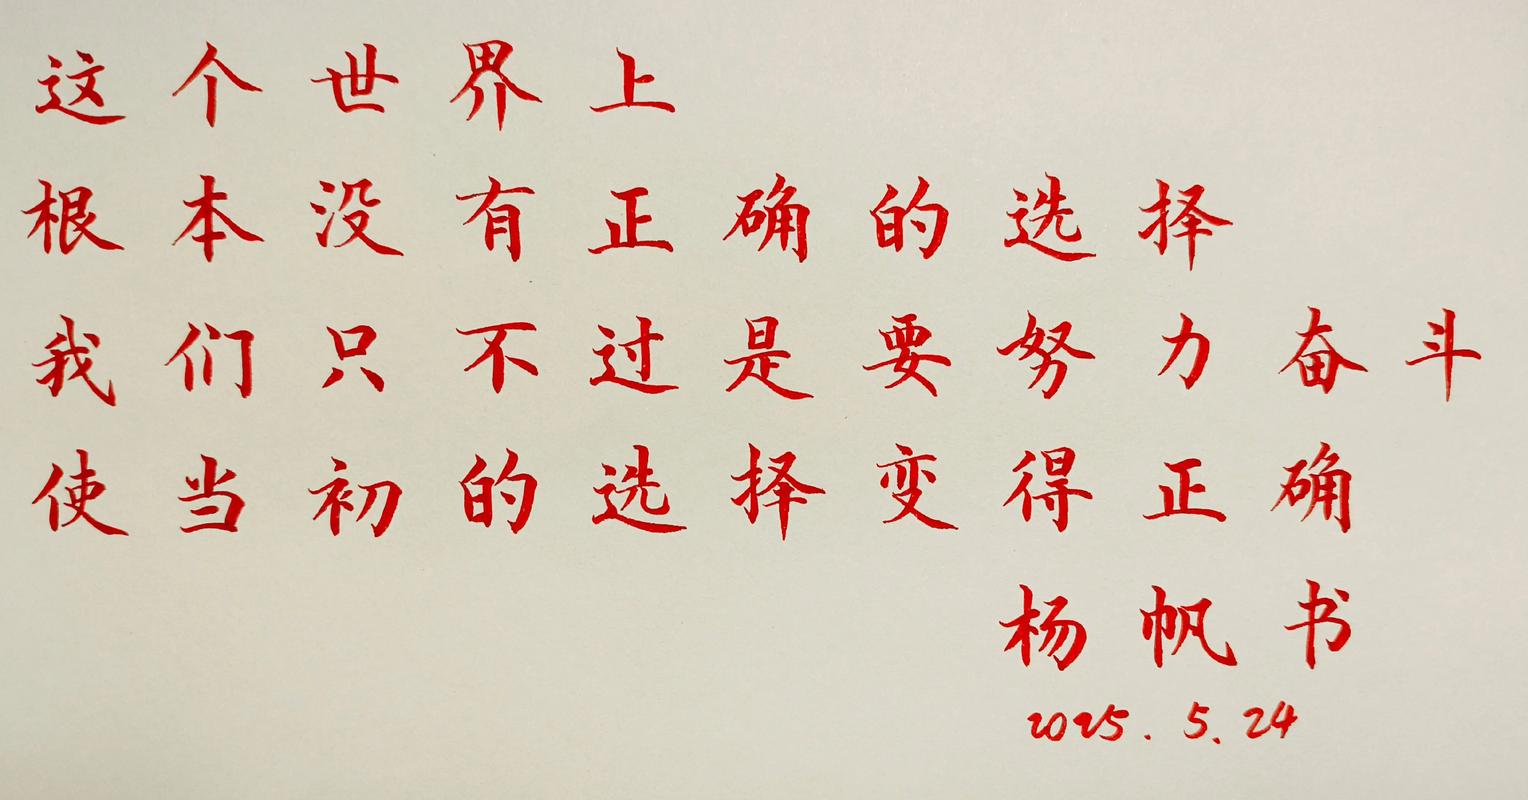 这个世界上
根本没有正确的选择
我们只不过是要努力奋斗
使当初的选择变得正确
杨帆书
2025.5.24